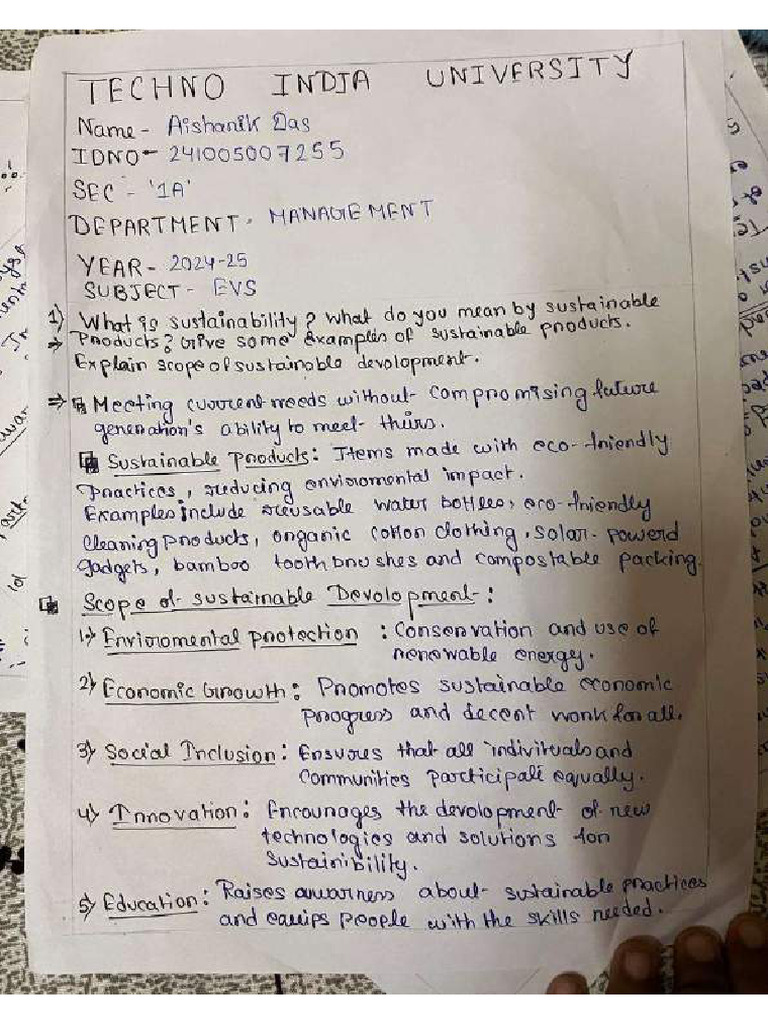 TECHNO INDIA UNIVERSITY
Name - Aishanik Das
IDNO - 241005007255
SEC - '1A'
DEPARTMENT - MANAGEMENT
YEAR - 2024-25
SUBJECT - EVS
1) What is sustainability? What do you mean by sustainable
→ Products? Give some examples of sustainable products.
Explain scope of sustainable devolopment.
⇒ Meeting current needs without compromising future
generation's ability to meet theirs.
Sustainable Products: Items made with eco-friendly
Practices, reducing enviromental impact.
Examples include reusable water bottles, eco-friendly
cleaning products, organic cotton clothing, solar-powerd
gadgets, bamboo toothbrushes and compostable packing.
Scope of sustainable Devolopment:
1) Enviromental protection : Conservation and use of
renewable energy.
2) Economic Growth: Promotes sustainable economic
progress and decent work for all.
3) Social Inclusion: Ensures that all individuals and
communities participate equally.
4) Innovation: Encourages the devolopment of new
technologies and solutions for
sustainibility.
5) Education: Raises awarness about sustainable practices
and equips people with the skills needed.